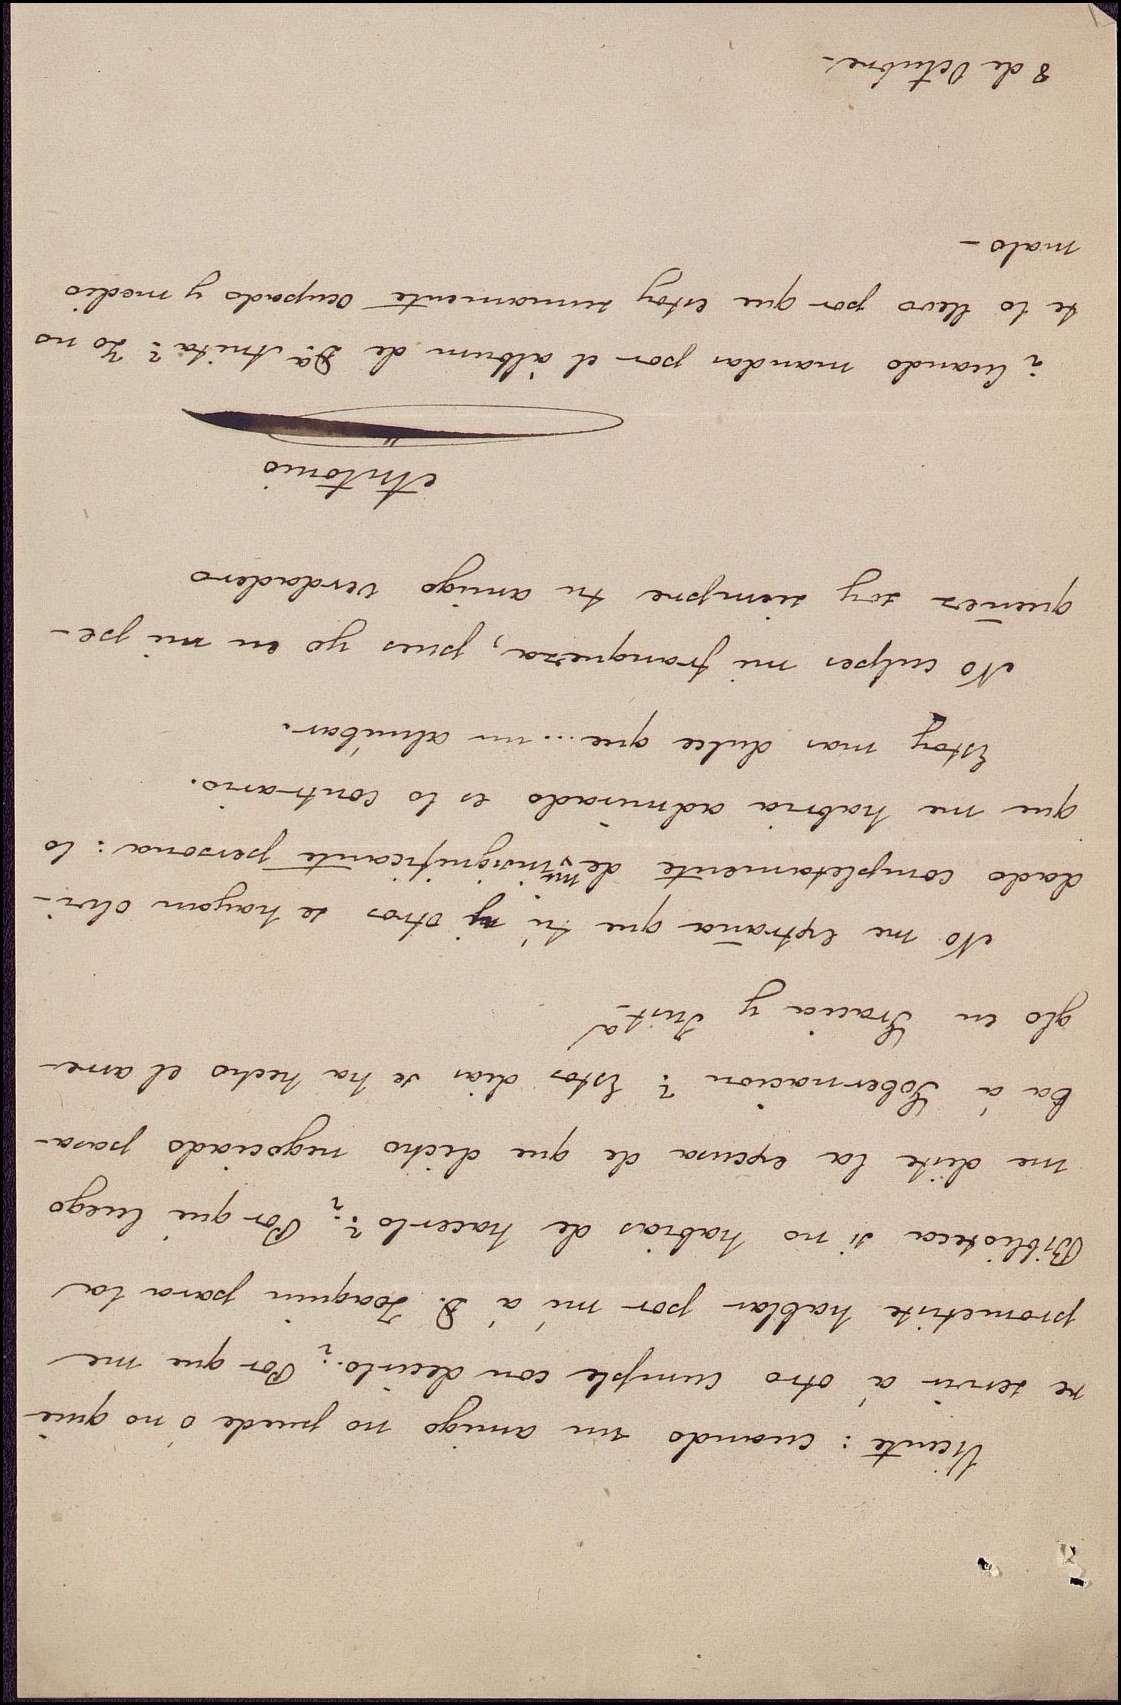 Vicente: cuando un amigo no puede ó no quie-
re servir á otro cumple con decirlo. ¿Por que me
prometiste hablar por mi á D. Joaquin para la
Biblioteca si no habias de hacerlo? ¿Por qué luego
me diste la excusa de que dicho negociado pasa-
ba á Gobernacion? Estos dias se ha hecho el arre-
glo en Gracia y Justa
No me extraña que tú y otros se hayan olvi-
dado completamente de mi insignificante persona: lo
que me habria admirado es lo contrario.
Estoy mas dulce que... un almibar.
No culpes mi franqueza, pues yo en mi pe-
queñez soy siempre tu amigo verdadero
Antonio
¿Cuando mandas por el álbum de Da. Anita? Yo no
te lo llevo por que estoy sumamente ocupado y medio
malo-
8 de Octubre-